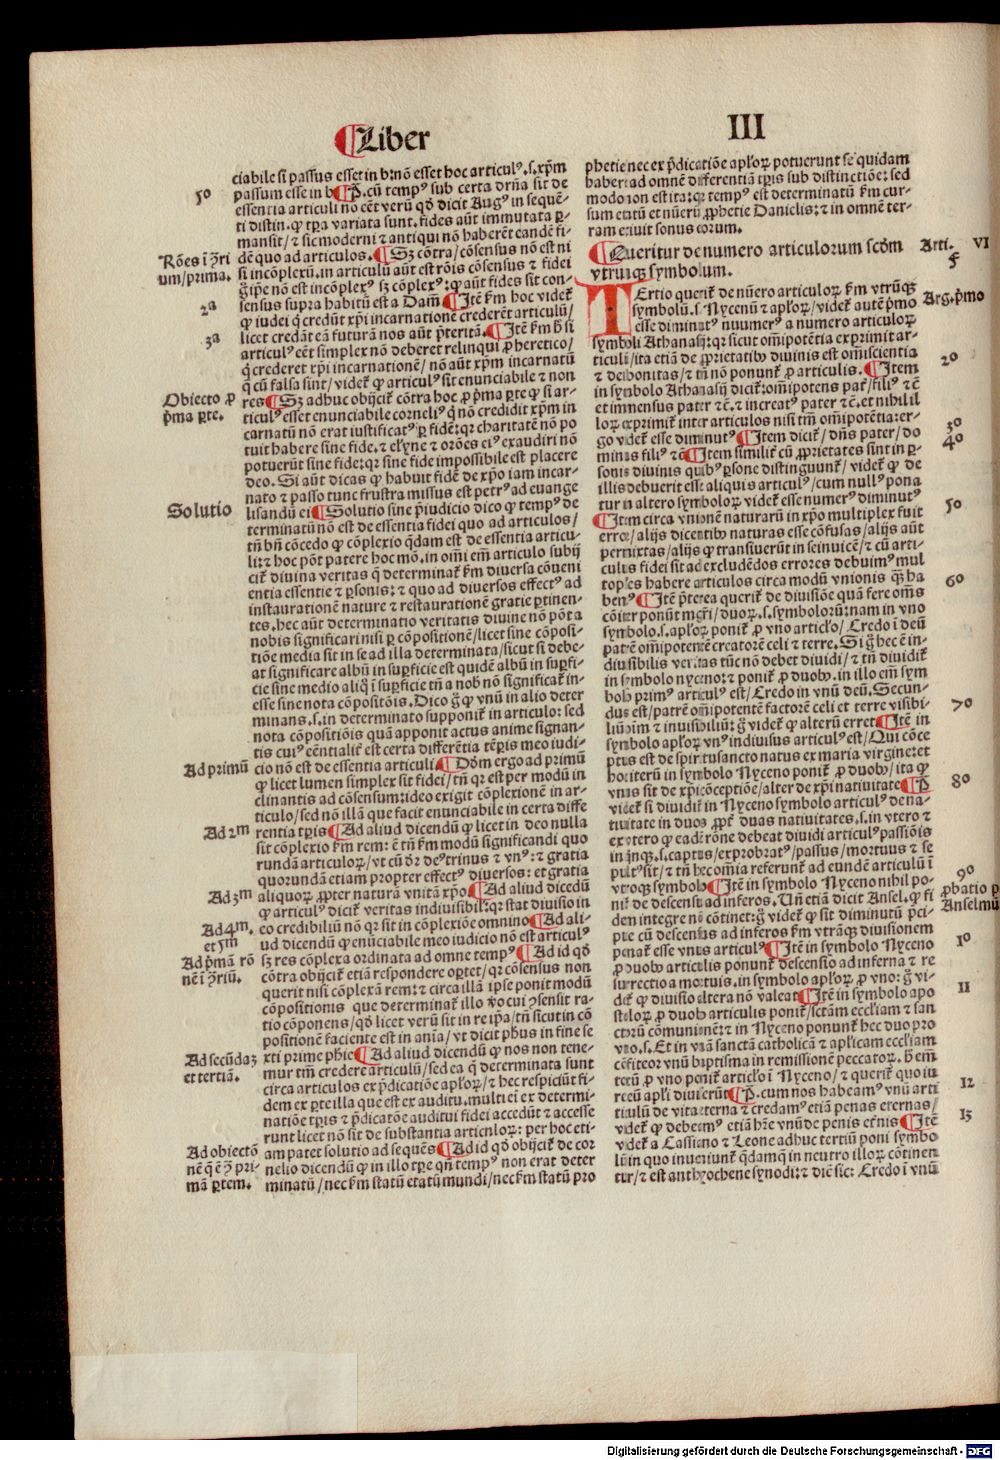 Liber
III
ciabile si passus esset in b: nõ esset hoc articulꝰ .s. xp̃m
passum esse in b P. cũ tempꝰ sub certa dr̃na sit de
essentia articuli nõ eẽt verũ qđ dicit Augꝰ in sequẽ-
ti distin. ꝙ tp̃a variata sunt. fides aũt immutata ꝑ-
mansit / ⁊ sic moderni ⁊ antiqui nõ haberẽt eandẽ fi-
dẽ quo ad articulos. Sꝫ cõtra / cõsensus nõ est ni
si incõplexũ. in articulũ aũt est rõis cõsensus ⁊ fidei
sensus supra habitũ est a Dam̃ Itẽ ẜm hoc videt̃
ꝙ iudei q̃ credũt xp̃i incarnationẽ crederẽt articulũ /
licet credãt eã futurã nos aũt p̃teritã. Itẽ ẜm ħ si
articulꝰ eẽt simplex nõ deberet relinqui ꝓ heretico /
q̃ crederet xp̃i incarnationẽ / nõ aũt xp̃m incarnatũ
q̃ cũ falsa sint / videt̃ ꝙ articulꝰ sit enunciabile ⁊ non
res Sꝫ adhuc obijcit̃ cõtra hoc ꝓ p̃ma ꝑte ꝙ si ar-
ticulꝰ esset enunciabile corneliꝰ q̃ nõ credidit xp̃m in
carnatũ nõ erat iustificatꝰ ꝑ fidẽ: qꝛ charitatẽ nõ po
tuit habere sine fide. ⁊ elyne ⁊ orões eiꝰ exaudiri nõ
potuerũt sine fide: qꝛ sine fide impossibile est placere
deo. Si aũt dicas ꝙ habuit fidẽ de xp̃o iam incar-
nato ⁊ passo tunc frustra missus est petrꝰ ad euange
lisandũ ei Solutio sine p̃iudicio dico ꝙ tempꝰ de
terminatũ nõ est de essentia fidei quo ad articulos /
tñ bñ cõcedo ꝙ cõplexio q̃dam est de essentia articu
li: ⁊ hoc põt patere hoc mõ. in om̃i em̃ articulo subij
cit̃ diuina veritas q̃ determinat̃ ẜm diuersa cõueni
entia essentie ⁊ ꝑsonis: ⁊ quo ad diuersos effectꝰ ad
instaurationẽ nature ⁊ restaurationẽ gratie ꝑtinen-
tes. hec aũt determinatio veritatis diuine nõ põt a
nobis significari nisi ꝑ cõpositionẽ / licet sine cõposi-
tiõe media sit in se ad illa determinata / sicut si debe-
at significare albũ in suꝑficie est quidẽ albũ in suꝑfi-
cie sine medio aliq̃ ĩ suꝑficie tñ a nob nõ significat̃ in-
esse sine nota cõpositõis. Dico g̃ ꝙ vnũ in alio deter
minans .s. in determinato supponit̃ in articulo: sed
nota cõpositiõis quã apponit actus anime signan-
tis cuiꝰ eẽntialit̃ est certa differẽtia tẽꝑis meo iudi-
cio nõ est de essentia articuli Dõm ergo ad primũ
ꝙ licet lumen simplex sit fidei / tñ qꝛ est per modũ in
clinantis ad cõsensum: ideo exigit cõplexionẽ in ar-
ticulo / sed nõ illã que facit enunciabile in certa diffe
rentia tꝑis Ad aliud dicendũ ꝙ licet in deo nulla
sit cõplexio ẜm rem: ẽ tñ ẜm modũ significandi quo
rundã articuloꝝ / vt cũ dr̃ deꝰ trinus ⁊ vnꝰ: ⁊ gratia
quorundã etiam propter effectꝰ diuersos: et gratia
aliquoꝝ ꝓpter naturã vnitã xp̃o Ad aliud dicẽdũ
ꝙ articulꝰ dicit̃ veritas indiuisibil: qꝛ stat diuisio in
eo credibiliũ nõ qꝛ sit in cõplexiõe omnino Ad ali-
ud dicendũ ꝙ enũciabile meo iudicio nõ est articulꝰ
sꝫ res cõplexa ordinata ad omne tempꝰ Ad id qđ
cõtra obijcit̃ etiã respondere oꝑtet / qꝛ cõsensus non
querit nisi cõplexã rem: ⁊ circa illã ipse ponit modũ
cõpositionis que determinat̃ illo ṽo cui ꝯsensit ra-
tio cõponens / qđ licet verũ sit in re ip̃a / tñ sicut in cõ
positionẽ faciente est in aĩa / vt dicit phus in fine se
xti prime phie Ad aliud dicendũ ꝙ nos non tene-
mur tm̃ credere articulũ / sed ea q̃ determinata sunt
circa articulos ex p̃dicatiõe apl̃oꝝ / ⁊ hec respiciũt fi-
dem ex ꝑte illa que est ex auditu. multi ei ex determi-
natiõe tꝑis ⁊ p̃dicatõe auditui fidei accedũt ⁊ accesse
runt licet nõ sit de substantia articuloꝝ: per hoc eti-
am patet solutio ad sequẽs Ad id qđ obijcit̃ de cor
nelio dicendũ ꝙ in illo tꝑe qñ tempꝰ non erat deter
minatũ / nec ẜm statũ etatũ mundi / nec ẜm statũ pro
phetie nec ex p̃dicatiõe apl̃oꝝ potuerunt se quidam
haberi ad omnẽ differentiã tꝑis sub distinctiõe: sed
modo non est ita: qꝛ tempꝰ est determinatũ ẜm cur-
sum etatũ et nũerũ ꝓphetie Danielis: ⁊ in omnẽ ter-
ram exiuit sonus eorum.
Queritur de numero articulorum scðm
vtrumqꝫ symbolum.
Tertio querit̃ de nũero articuloꝝ ẜm vtrũqꝫ
symbolũ .s. Nycenũ ⁊ apl̃oꝝ / videt̃ autẽ p̃mo
esse diminutꝰ nuumerꝰ a numero articuloꝝ
symboli Athanasij: qꝛ sicut om̃ipotẽtia exprimit̃ ar-
ticulũ / ita etiã de ꝓprietatib diuinis est om̃iscientia
⁊ de bonitas / ⁊ tñ nõ ponunt̃ ꝓ articulis. Item
in symbolo Athanasij dicit̃: om̃ipotens pat̃ / filiꝰ ⁊ẽ
et immensus pater ⁊ẽ. ⁊ increatꝰ pater ⁊ẽ. et nihil il
loꝝ exprimit̃ inter articulos nisi tm̃ om̃ipotẽtia: er-
go videt̃ esse diminutꝰ Item dicit̃ / dñs pater / do
minus filiꝰ ⁊ẽ Item similit̃ cũ ꝓprietates sint in ꝑ-
sonis diuinis quibꝰ ꝑsone distinguunt̃ / videt̃ ꝙ de
illis debuerit esse aliquis articulꝰ / cum nullꝰ pona
tur in altero symboloꝝ videt̃ esse numerꝰ diminutꝰ
Item circa vnionẽ naturarũ in xp̃o multiplex fuit
error / alijs dicentib naturas esse cõfusas / alijs aũt
permixtas / alijs ꝙ transiuerũt in seinuicẽ / ⁊ cũ arti-
culis fidei sit ad excludẽdos errores debuimꝰ mul
toples habere articulos circa modũ vnionis q̃s ha
bemꝰ Itẽ p̃terea querit̃ de diuisiõe quã fere om̃s
cõiter ponũt mgr̃i / duoꝝ .s. symboloꝝ: nam in vno
symbolo .s. apl̃oꝝ ponit̃ ꝓ vno articl̃o / Credo ĩ deũ
patrẽ om̃ipotentẽ creatorẽ celi ⁊ terre. Si g̃ hec ẽ in-
diuisibilis veritas tũc nõ debet diuidi / ⁊ tñ diuidit̃
in symbolo nyceno: ⁊ ponit̃ ꝓ duob. in illo em̃ sym
bolo primꝰ articulꝰ est / Credo in vnũ deũ. Secun-
dus est / patrẽ om̃ipotentẽ factorẽ celi et terre visibi-
liũ oĩm ⁊ inuisibiliũ: g̃ videt̃ ꝙ alterũ erret Itẽ in
symbolo apl̃oꝝ vnꝰ indiuisus articulꝰ est / Qui cõce
ptus est de spiritusancto natus ex maria virgine: et
hoc iterũ in symbolo Nyceno ponit̃ ꝓ duob / ita ꝙ
vnus sit de xp̃i cõceptiõe / alter de xp̃i natiuitate P.
videt̃ si diuidit̃ in Nyceno symbolo articulꝰ de na-
tiuitate in duos ꝓpt̃ duas natiuitates .s. in vtero ⁊
ex vtero ꝙ eadẽ rõne debeat diuidi articulꝰ passiõis
in q̃nqꝫ .s. captus / exprobratꝰ / passus / mortuus ⁊ se
pultꝰ sit / ⁊ tñ hec om̃ia referunt̃ ad eundẽ articulũ ĩ
vtroqꝫ symbolo Itẽ in symbolo Nyceno nihil po-
nit̃ de descensu ad inferos. Uñ etiã dicit Ansel. ꝙ fi
dem integre nõ cõtinet: g̃ videt̃ ꝙ sit diminutũ p̃ci-
pue cũ descensus ad inferos ẜm vtrãqꝫ diuisionem
ponat̃ esse vnus articulꝰ Itẽ in symbolo Nyceno
ꝓ duob articulis ponunt̃ descensio ad inferna ⁊ re
surrectio a mortuis. in symbolo apl̃oꝝ ꝓ vno: g̃ vi-
det̃ ꝙ diuisio altera nõ valeat Itẽ in symbolo apo
stoloꝝ ꝓ duob articulis ponit̃ / sctãm eccl̃iam ⁊ san
ctorũ cõmunionẽ: ⁊ in Nyceno ponunt̃ hec duo pro
vno .s. Et in vnã sanctã catholicã ⁊ apl̃icam eccl̃iam
cõfiteor vnũ baptisma in remissionẽ peccatoꝝ. ħ em̃
totũ ꝓ vno ponit̃ articl̃o ĩ Nyceno / ⁊ querit̃ quo iu
re eũ apl̃i diuiserũt P. cum nos habeamꝰ vnũ arti
culũ de vita eterna ⁊ credamꝰ etiã penas eternas /
videt̃ ꝙ debemꝰ etiã hr̃e vnũ de penis et̃nis Itẽ
videt̃ a Cassiano ⁊ Leone adhuc tertiũ poni symbo
lũ in quo inueniunt̃ q̃damqꝫ in neutro illoꝝ cõtinen
tur / ⁊ est anthyochene synodi: ⁊ diẽ sic: Credo ĩ vnũ
5o
Rões ĩ ꝯ̃ri
um / prima.
2a
3a
Obiecto ꝓ
p̃ma ꝑte.
Solutio
Ad primũ
Ad 2m
Ad 3m
Ad 4m.
et 5m
Ad p̃mã rõ
nẽ ĩ ꝯ̃riũ.
Ad secũdaꝫ
et tertiã.
Ad obiectõ
nẽ q̃ ẽ ꝯ̃ pri-
mã ꝑtem.
Arti. VI
Arg. p̃mo
2o
3o
4o
5o
6o
7o
8o
9o
ꝓbatio ꝑ
Anselmũ
1o
11
12
13
Digitalisierung gefördert durch die Deutsche Forschungsgemeinschaft - DFG